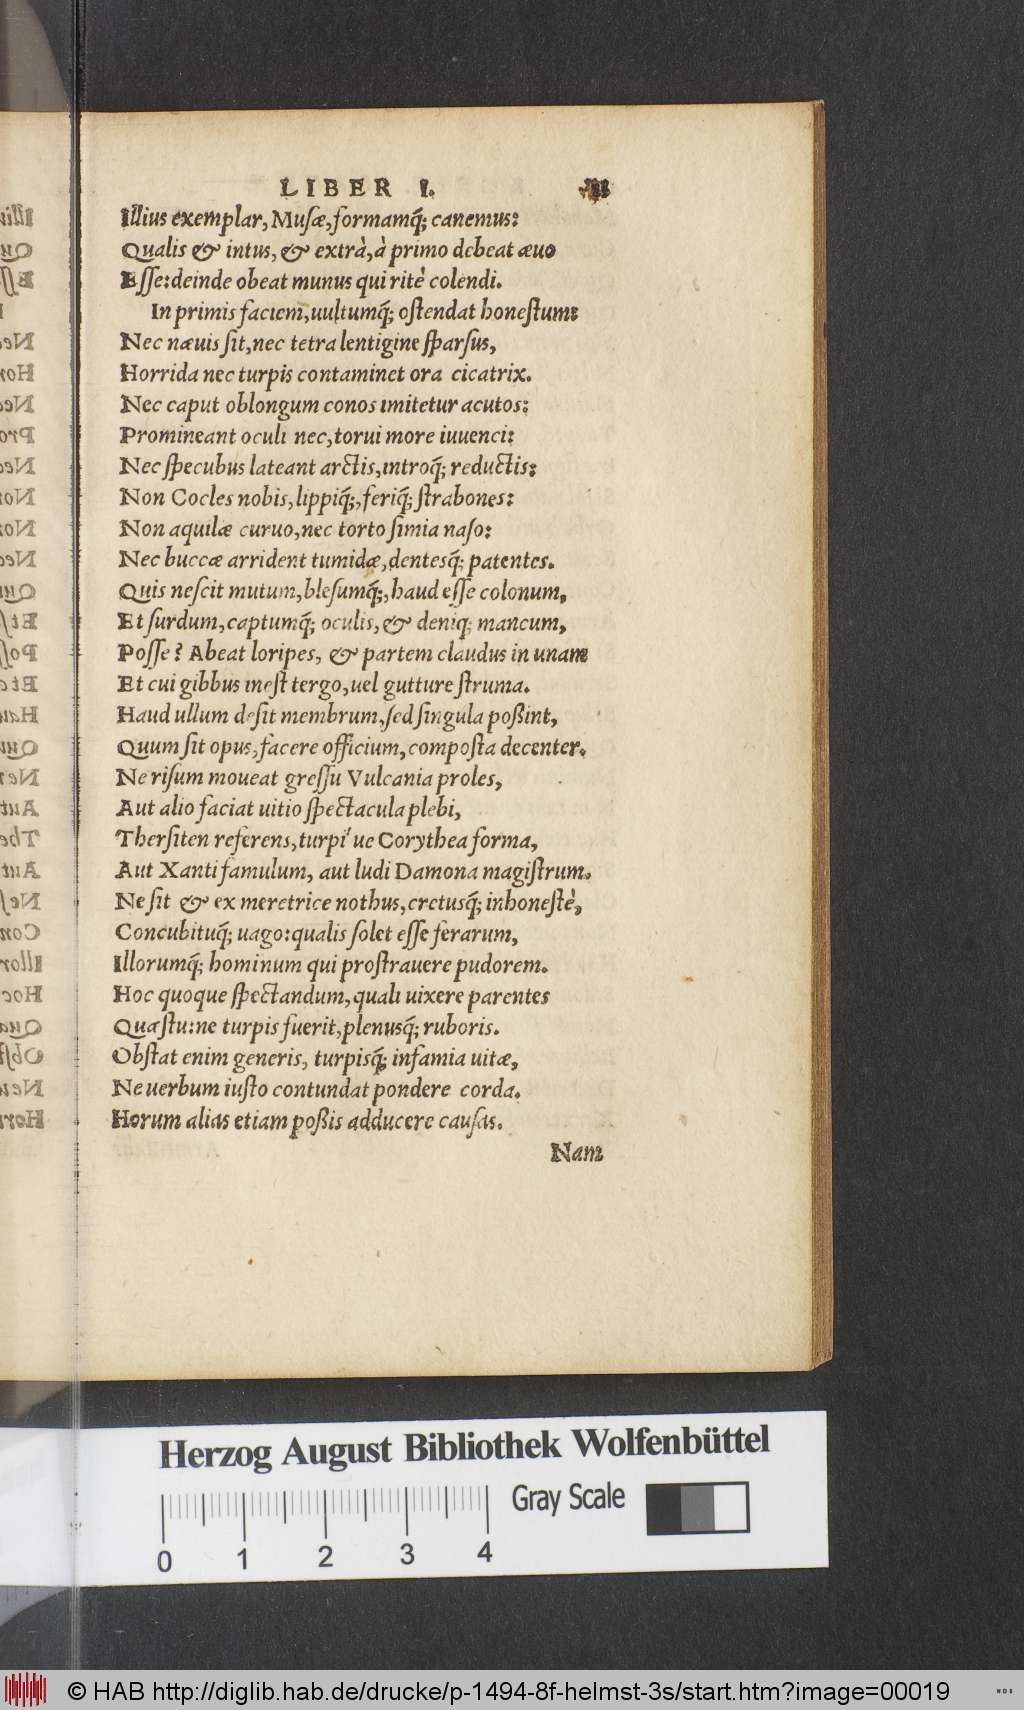 LIBER I.
Illius exemplar, Musæ, formamq́; canemus:
Qualis & intus, & extrà, à primo debeat æuo
Esse: deinde obeat munus qui ritè colendi.
In primis faciem, uultumq́; ostendat honestum:
Nec næuis sit, nec tetra lentigine sparsus,
Horrida nec turpis contaminet ora cicatrix.
Nec caput oblongum conos imitetur acutos:
Promineant oculi nec, torui more iuuenci:
Nec specubus lateant arctis, introq́; reductis:
Non Cocles nobis, lippiq́;, feriq́; strabones:
Non aquilæ curuo, nec torto simia naso:
Nec buccæ arrident tumidæ, dentesq́; patentes.
Quis nescit mutum, blesumq́;, haud esse colonum,
Et surdum, captumq́; oculis, & deniq; mancum,
Posse? Abeat loripes, & partem claudus in unam
Et cui gibbus inest tergo, uel gutture struma.
Haud ullum desit membrum, sed singula poßint,
Quum sit opus, facere officium, composta decenter.
Ne risum moueat gressu Vulcania proles,
Aut alio faciat uitio spectacula plebi,
Thersiten referens, turpi' ue Corythea forma,
Aut Xanti famulum, aut ludi Damona magistrum.
Ne sit & ex meretrice nothus, cretusq́; inhonestè,
Concubituq́; uago: qualis solet esse ferarum,
Illorumq́; hominum qui prostrauere pudorem.
Hoc quoque spectandum, quali uixere parentes
Quæstu: ne turpis fuerit, plenusq́; ruboris.
Obstat enim generis, turpisq́; infamia uitæ,
Ne uerbum iusto contundat pondere corda.
Horum alias etiam poßis adducere causas.
Nam
Herzog August Bibliothek Wolfenbüttel
Gray Scale
0 1 2 3 4
© HAB http://diglib.hab.de/drucke/p-1494-8f-helmst-3s/start.htm?image=00019